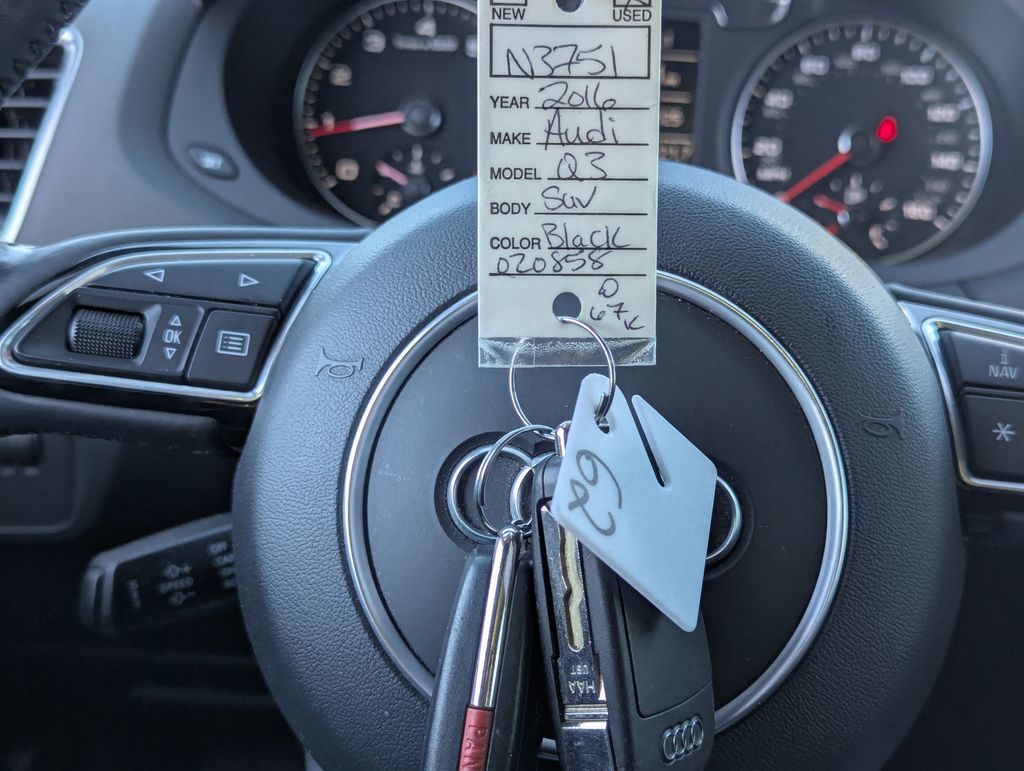 NEW USED
N3751
YEAR 2016
MAKE Audi
MODEL Q3
BODY Suv
COLOR Black
020858
67K
OK
NAV
*
62
SPEED
HAA
UST
PAN